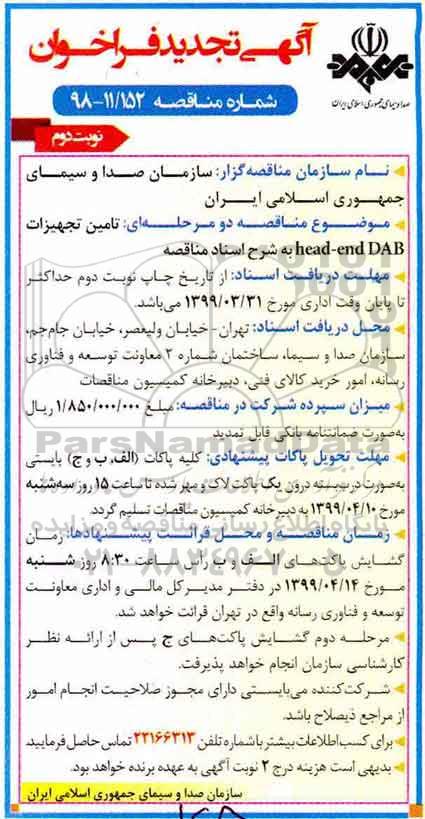 آگهی تجدید فراخوان
صدا و سیمای جمهوری اسلامی ایران
شماره مناقصه ۹۸-۱۱/۱۵۲
نوبت دوم
نــام سـازمان مناقصه‌گزار: سازمـان صدا و سیمـای
جمهـوری اسـلامی ایــران
موضـوع مناقـصه دو مرحـله‌ای: تامین تجهیزات
head-end DAB به شرح اسناد مناقصه
مهلـت دریافـت اسـناد: از تاریخ چاپ نوبت دوم حداکثر
تا پایان وقت اداری مورخ ۱۳۹۹/۰۳/۳۱ می‌باشد.
محل دریافت اسناد: تهران- خیابان ولیعصر، خیابان جام‌جم،
سازمان صدا و سیما، ساختمان شماره ۲ معاونت توسعه و فناوری
رسانه، امور خرید کالای فنی، دبیرخانه کمیسیون مناقصات
میـزان سپرده شرکت در مناقصه: مبلغ ۱/۸۵۰/۰۰۰/۰۰۰ ریـال
به‌صورت ضمانتنامه بانکی قابل تمدید
مهلت تحویل پاکات پیشنهادی: کلیه پاکات (الف، ب و ج) بایستی
به‌صورت دربسته درون یک پاکت لاک و مهر شده تا ساعت ۱۵ روز سه‌شنبه
مورخ ۱۳۹۹/۰۴/۱۰ به دبیرخانه کمیسیون مناقصات تسلیم گردد.
زمـان مناقصه و محـل قرائت پیشـنهادها: زمـان
گشـایش پاکت‌های الـف و ب رأس ساعت ۸:۳۰ روز شـنبه
مـورخ ۱۳۹۹/۰۴/۱۴ در دفتر مدیرکل مالـی و اداری معاونـت
توسعه و فناوری رسانه واقع در تهران قرائت خواهد شد.
مرحلـه دوم گشـایش پاکت‌هـای ج پـس از ارائـه نظـر
کارشناسی سازمان انجام خواهد پذیرفت.
شـرکت‌کننده می‌بایسـتی دارای مجـوز صلاحیـت انجـام امور
از مراجع ذیصلاح باشد.
برای کسب اطلاعات بیشتر با شماره تلفن ۲۲۱۶۶۳۱۳ تماس حاصل فرمایید.
بدیهی است هزینه درج ۲ نوبت آگهی به عهده برنده خواهد بود.
سازمان صدا و سیمای جمهوری اسلامی ایران
ParsNamadData
پایگاه اطلاع رسانی مناقصه و مزایده
۰۲۱-۸۸۳۴۹۶۷۰-۵